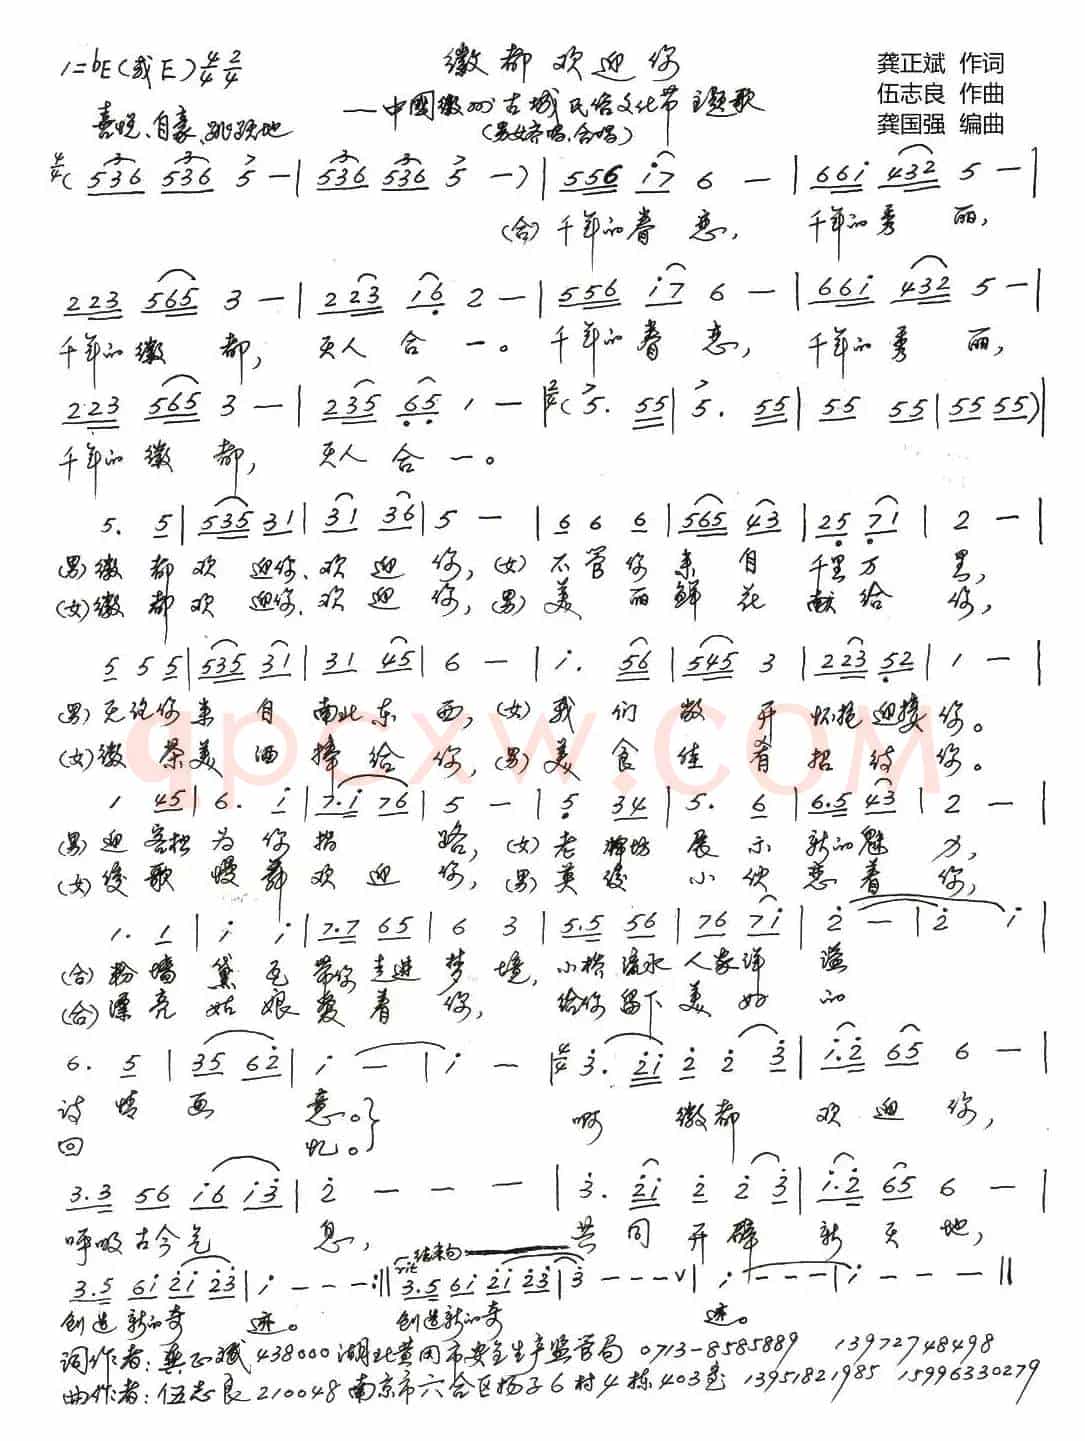 1=bE(或E) 4/4 2/4
徽都欢迎你
龚正斌 作词
——中國徽州古城民俗文化节主题歌
伍志良 作曲
喜悦、自豪、跳跃地
(男女齐唱、合唱)
龚国强 编曲
4/4 ( 536 536 5 — | 536 536 5 — ) | 556 i7 6 — | 66i 432 5 — |
(合) 千年的眷恋， 千年的秀丽，
223 565 3 — | 223 i6 2 — | 556 i7 6 — | 66i 432 5 — |
千年的徽都， 天人合一。 千年的眷恋， 千年的秀丽，
223 565 3 — | 235 65 1 — | 2/4 ( 5. 55 | 5. 55 | 55 55 | 55 55 ) |
千年的徽都， 天人合一。
5. 5 | 535 31 | 31 36 | 5 — | 6 6 6 | 565 43 | 25 71 | 2 — |
(男) 徽都欢迎你、欢迎你， (女) 不管你来自千里万里，
(女) 徽都欢迎你、欢迎你， (男) 美丽鲜花献给你，
5 5 5 | 535 31 | 31 45 | 6 — | i. 56 | 545 3 | 223 52 | 1 — |
(男) 无论你来自南北东西， (女) 我们敞开怀抱迎接你。
(女) 徽茶美酒捧给你， (男) 美食佳肴招待你。
qpcxw.com
1 45 | 6. i | 7.i 76 | 5 — | 5 34 | 5. 6 | 6.5 43 | 2 — |
(男) 迎客松为你指路， (女) 老牌坊展示新的魅力，
(女) 歌慢舞欢迎你， (男) 英俊小伙恋着你，
1. 1 | i i | 7.7 65 | 6 3 | 5.5 56 | 76 7i | 2 — | 2 i |
(合) 粉墙黛瓦带你走进梦境， 小桥流水人家洋溢
(合) 漂亮姑娘爱着你， 给你留下美好的
6. 5 | 35 62 | i — | i — | 4/4 3. 2i 2 2 3 | i.2 65 6 — |
诗情画意。} 啊 徽都欢迎你，
回忆。}
3.3 56 i6 i3 | 2 — — — | 3. 2i 2 2 3 | i.2 65 6 — |
呼吸古今气息， 共同开辟新天地，
结束句
rit
3.5 6i 2i 23 | i — — — :|| 3.5 6i 2i 23 | 3 — — — ∨ | i — — — | i — — — ||
创造新的奇迹。 创造新的奇迹。
词作者: 龚正斌 438000 湖北黄冈市安全生产监管局 0713-8585889 13972748498
曲作者: 伍志良 210048 南京市六合区扬子6村4栋403室 13951821985 15996330279